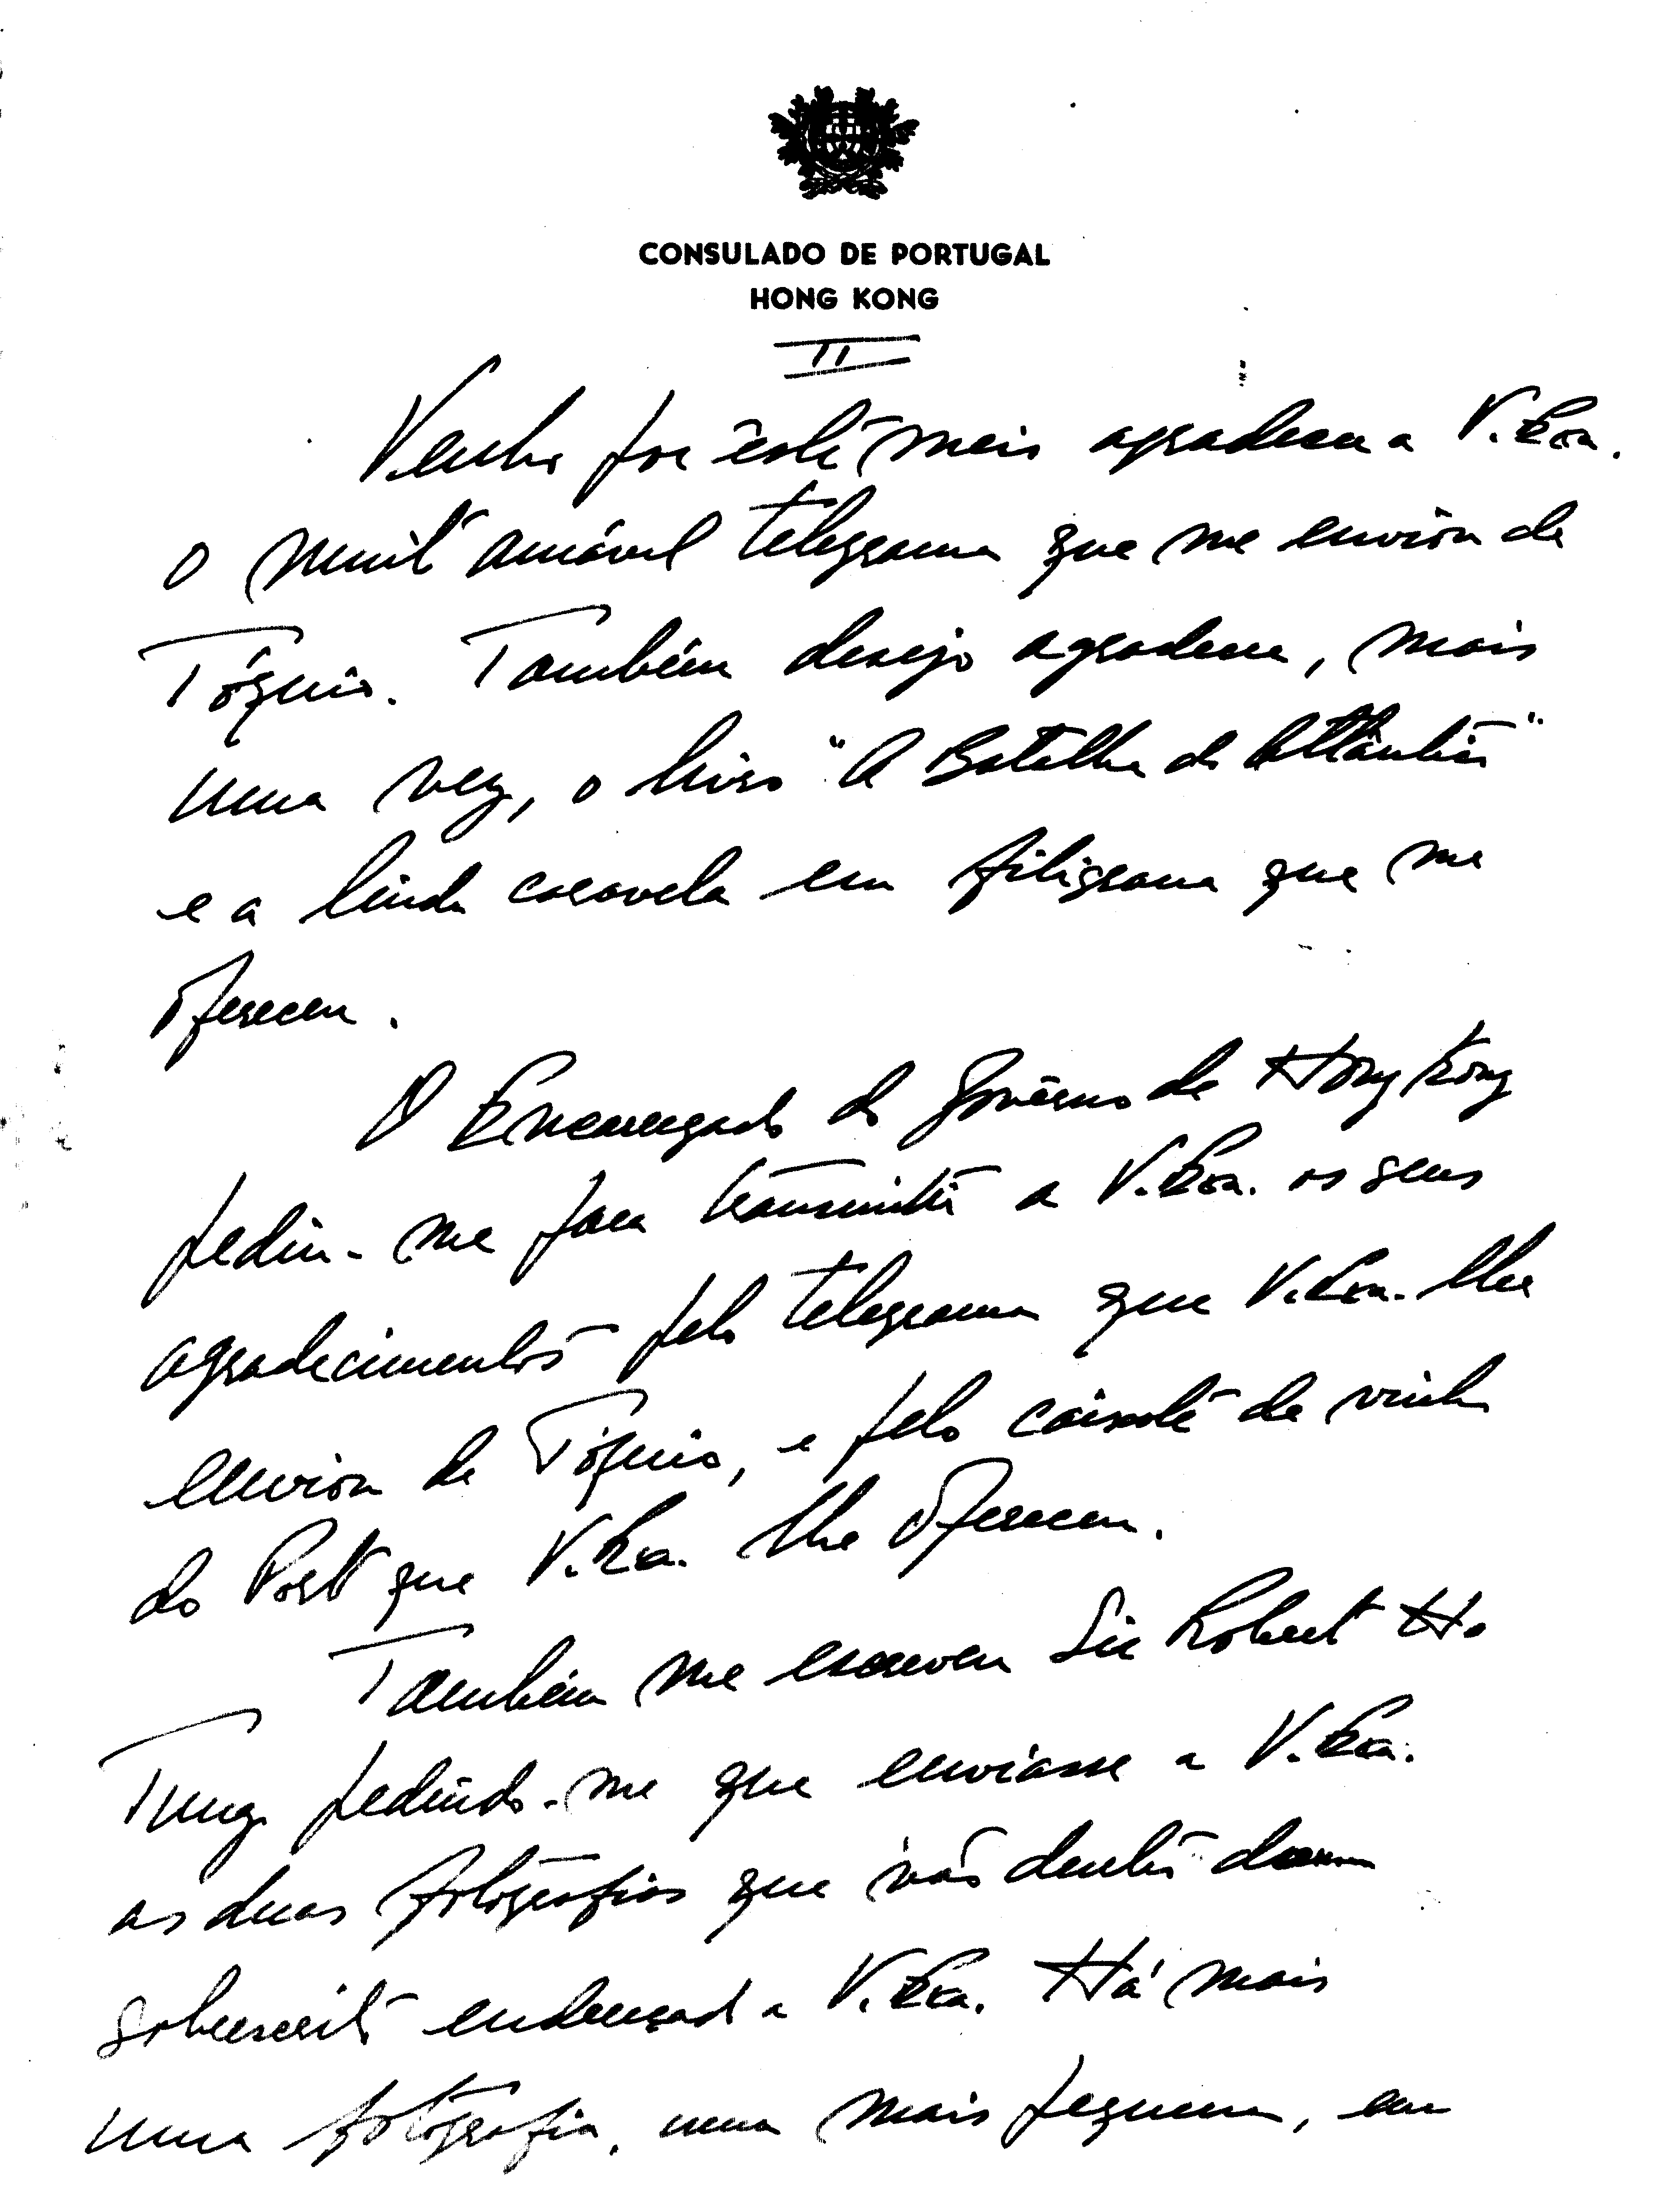 CONSULADO DE PORTUGAL
HONG KONG
II
Venho por êste meio agradecer a V. Exa.
o muito amável telegrama que me enviou de
Tóquio. Também desejo agradecer, mais
uma vez, o livro "A Batalha do Atlântico"
e a linda caravela em filigrana que me
ofereceu.
O Encarregado do Govêrno de Hong Kong
pediu-me para transmitir a V. Exa. os seus
agradecimentos pelo telegrama que V. Exa. lhe
enviou de Tóquio, e pelo caixote de vinho
do Porto que V. Exa. lhe ofereceu.
Também me escreveu Sir Robert Ho
Tung pedindo-me que enviasse a V. Exa.
as duas fotografias que vão dentro dum
sobrescrito endereçado a V. Exa. Há mais
uma fotografia, numa mais pequena, em